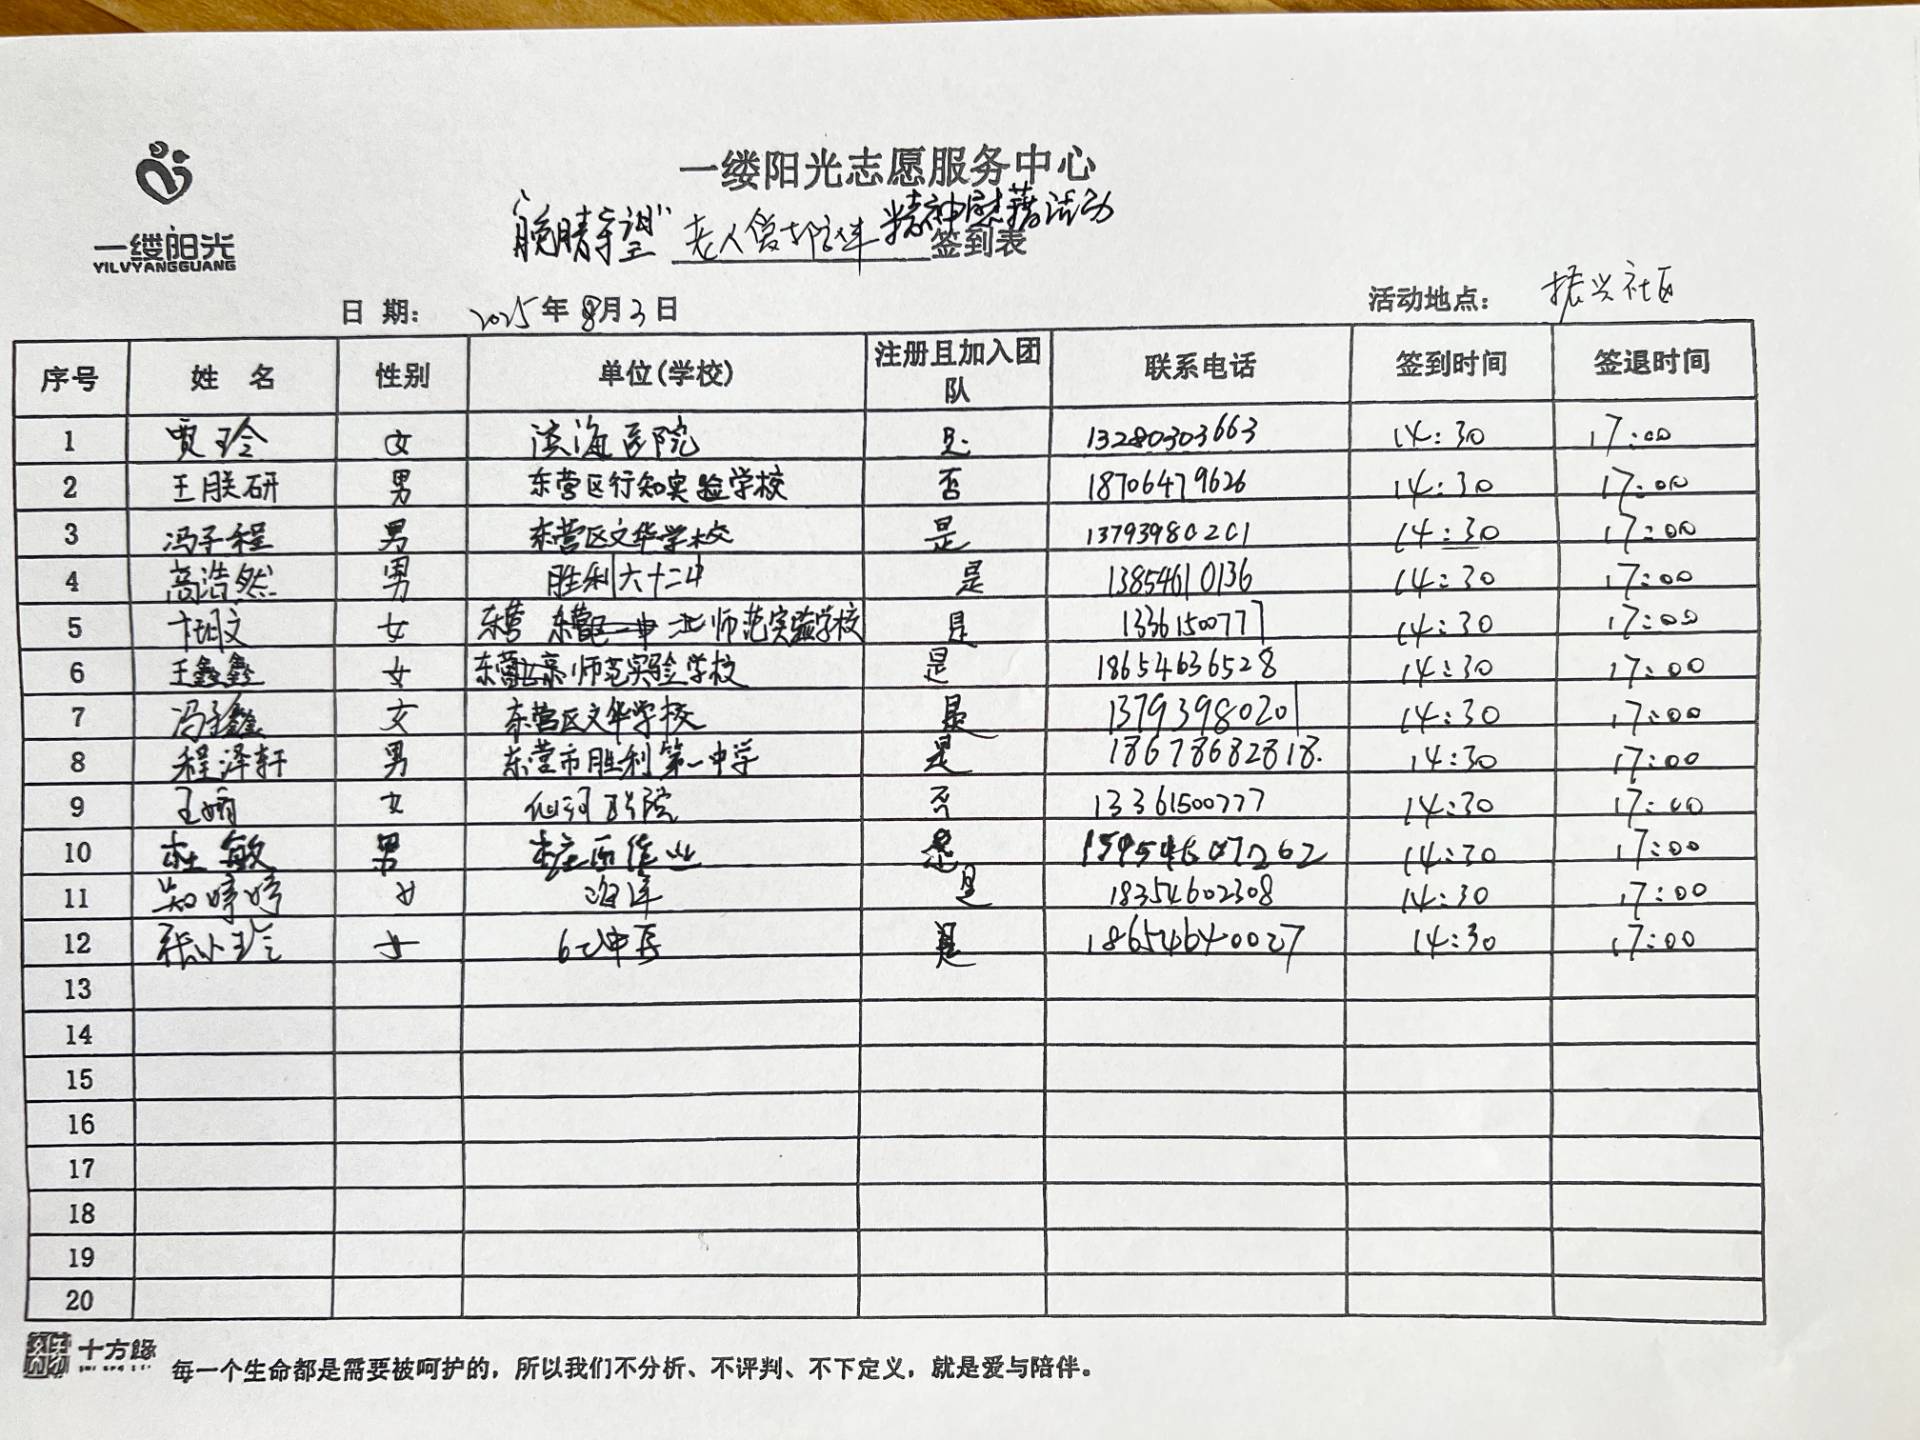 一缕阳光
YILVYANGGUANG
一缕阳光志愿服务中心
精神慰藉活动
老人 签到表
日 期: 2025年8月3日
活动地点: 振兴社区
序号 姓 名 性别 单位(学校) 注册且加入团队 联系电话 签到时间 签退时间
1 贾玲 女 滨海医院 是 13280303663 14:30 17:00
2 王朕研 男 东营区行知实验学校 否 18706479626 14:30 17:00
3 冯子程 男 东营区文华学校 是 13793980201 14:30 17:00
4 高浩然 男 胜利六十二中 是 13854610136 14:30 17:00
5 女 东营 师范实验学校 是 13361500777 14:30 17:00
6 王鑫鑫 女 东营 师范实验学校 是 18654636528 14:30 17:00
7 冯子鑫 女 东营区文华学校 是 13793980201 14:30 17:00
8 程泽轩 男 东营市胜利第一中学 是 18678682818. 14:30 17:00
9 王娟 女 仙河 院 否 13361500777 14:30 17:00
10 杜敏 男 是 14:30 17:00
11 婷婷 女 是 18354602308 14:30 17:00
12 张小玲 女 是 18654640027 14:30 17:00
13
14
15
16
17
18
19
20
十方缘
每一个生命都是需要被呵护的，所以我们不分析、不评判、不下定义，就是爱与陪伴。